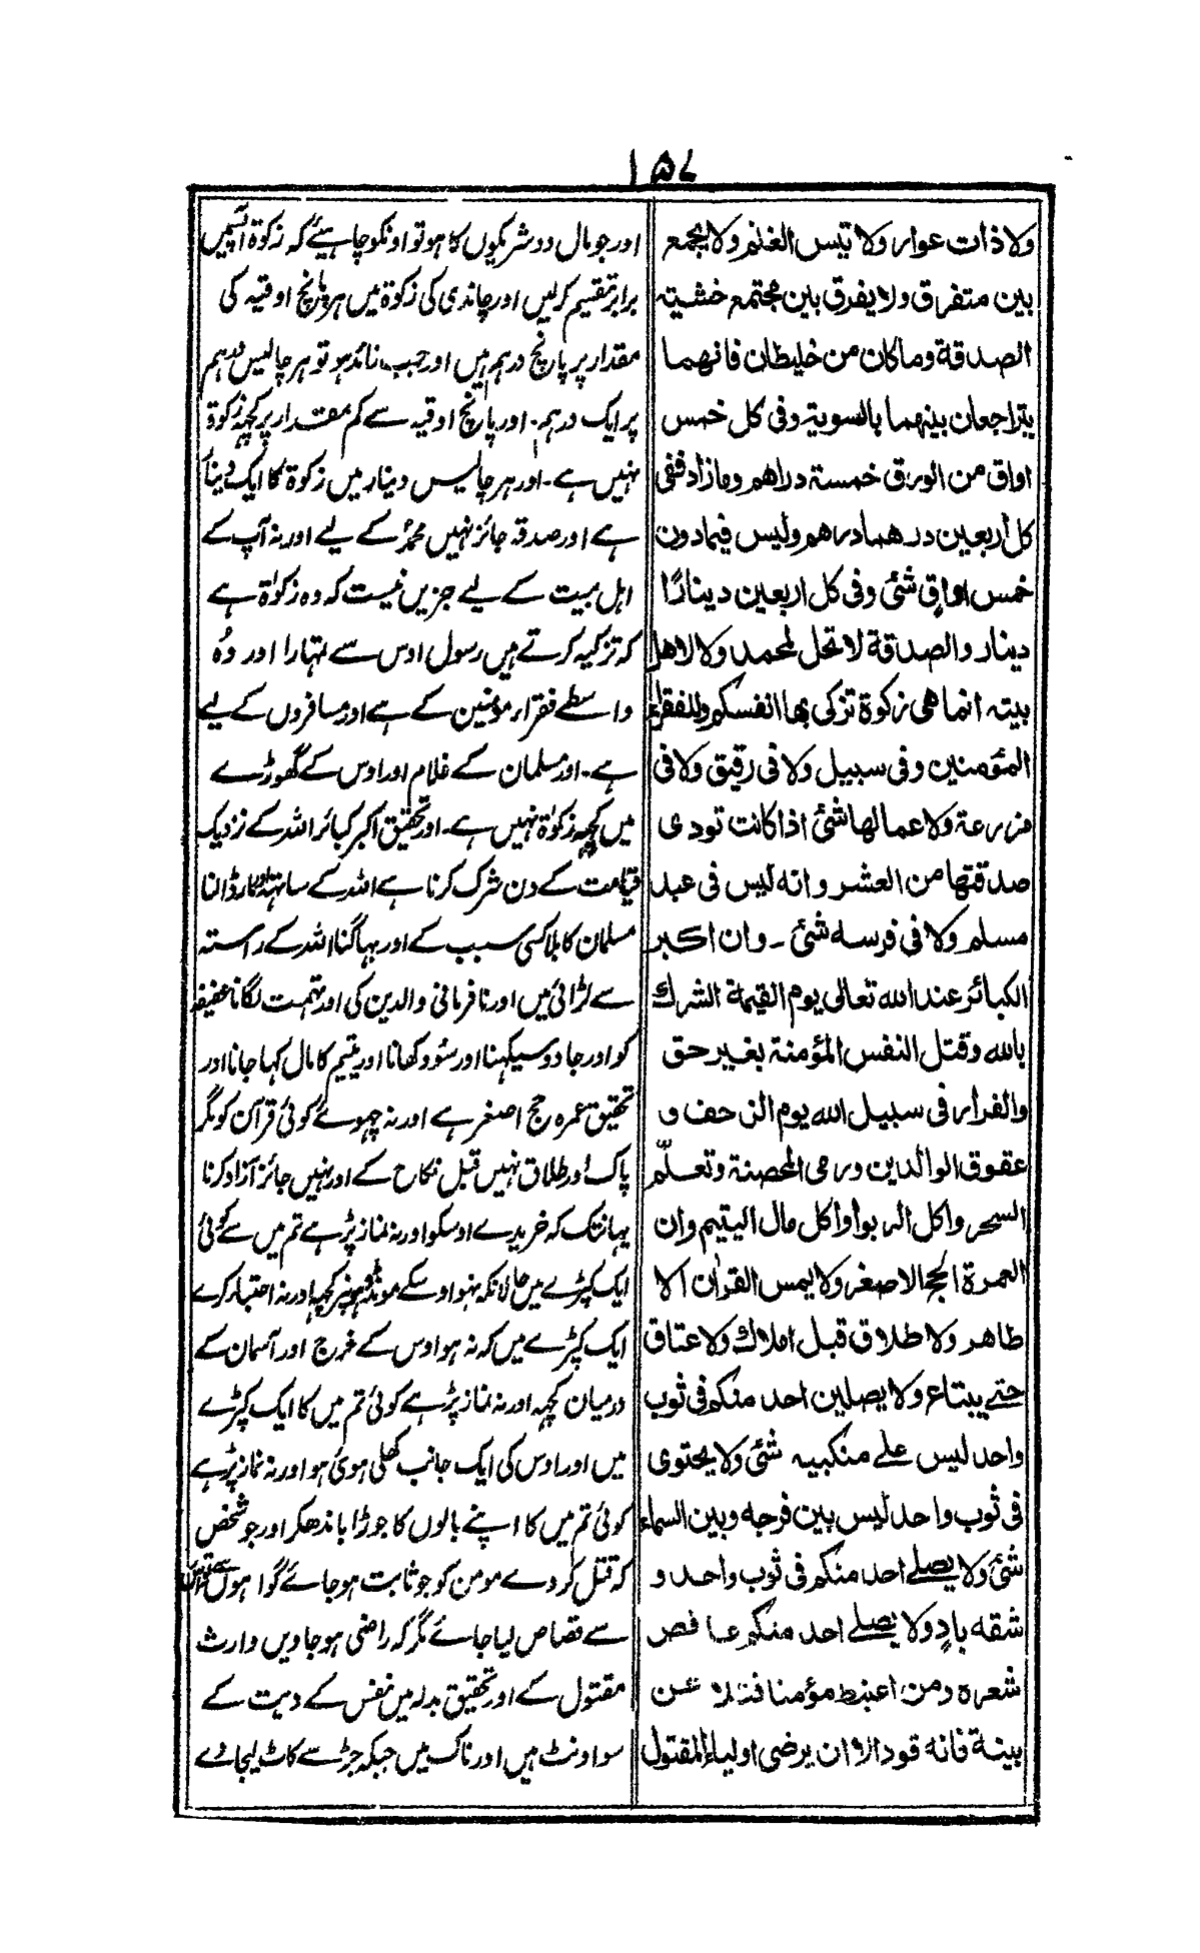 ۱۵۷
ولا ذات عوار ولا تیس الغنم ولا یجمع
بین متفرق ولا یفرق بین مجتمع خشیتہ
الصدقة وماکان من خلیطان فانهما
یتراجعان بینهما بالسویة وفی کل خمس
اواق من الورق خمسة دراهم ومازاد ففی
کل اربعین درهما دراهم ولیس فیمادون
خمس اواق شئ وفی کل اربعین دینارًا
دینار والصدقة لا تحل لمحمد ولا لاهل
بیته انما هی زکوة تزکی بها انفسکم وللفقراء
المؤمنین وفی سبیل ولا فی رقیق ولا فی
مزرعة ولا عمالها شئ اذا کانت تودی
صدقتها من العشر وانه لیس فی عبد
مسلم ولا فی فرسه شئ ۔ وان اکبر
الکبائر عند الله تعالی یوم القیمة الشرك
بالله وقتل النفس المؤمنة بغیر حق
والفرار فی سبیل الله یوم الزحف و
عقوق الوالدین ورمی المحصنة وتعلّم
السحر واکل الربوا واکل مال الیتیم وان
العمرة الحج الاصغر ولا یمس القران الا
طاهر ولا طلاق قبل املاك ولا عتاق
حتے یبتاع ولا یصلین احد منکم فی ثوب
واحد لیس علے منکبیه شئ ولا یحتوی
فی ثوب واحد لیس بین فرجه وبین السماء
شئ ولا یصلے احد منکم فی ثوب واحد و
شقه بادٍ ولا یصلے احد منکم عاقص
شعره ومن اعتبط مؤمنا قتلا عن
بینة فانه قود الا ان یرضی اولیاء المقتول
اور جو مال دو شریکوں کا ہو تو اونکو چاہیئے کہ زکوۃ آپسمیں
برابر تقسیم کرلیں اور چاندی کی زکوۃ میں ہر پانچ اوقیہ کی
مقدار پر پانچ درہم ہیں اور جب زائد ہو تو ہر چالیس درہم
پر ایک درہم۔ اور پانچ اوقیہ سے کم مقدار پر کچہہ زکوۃ
نہیں ہے۔ اور ہر چالیس دینار میں زکوۃ کا ایک دینار
ہے اور صدقہ جائز نہیں محمدؐ کے لیے اور نہ آپ کے
اہل بیت کے لیے جزیں نیست کہ وہ زکوٰۃ ہے
کہ تزکیہ کرتے ہیں رسول اوس سے تہارا اور وُہ
واسطے فقراء مؤمنین کے ہے اور مسافروں کے لیے
ہے۔ اور مسلمان کے غلام اور اوس کے گھوڑے
میں کچہہ زکوٰۃ نہیں ہے۔ اور تحقیق اکبر کبائر اللہ کے نزدیک
قیامت کے دن شرک کرنا ہے اللہ کے ساتہہ اور مارڈالنا
مسلمان کا بلا کسی سبب کے اور بہاگنا اللہ کے راستہ
سے لڑائی میں اور نافرمانی والدین کی اور تہمت لگانا عفیفہ
کو اور جادو سیکہنا اور سود کھانا اور یتیم کا مال کہا جانا اور
تحقیق عمرہ حج اصغر ہے اور نہ چہوے کوئی قرآن کو مگر
پاک اور طلاق نہیں قبل نکاح کے اور نہیں جائز آزاد کرنا
یہانتک کہ خریدے اوسکو اور نہ نماز پڑہے تم میں سے کوئی
ایک کپڑے میں حالانکہ نہو اوسکے مونڈہونپر کچہہ اور نہ احتباء کرے
ایک کپڑے میں کہ نہ ہو اوس کے فرج اور آسمان کے
درمیان کچہہ اور نہ نماز پڑہے کوئی تم میں کا ایک کپڑے
میں اور اوس کی ایک جانب کھلی ہوئی ہو اور نہ نماز پڑہے
کوئی تم میں کا اپنے بالوں کا جوڑا باندھکر اور جو شخص
کہ قتل کردے مومن کو جو ثابت ہوجائے گواہوں سے
سے قصاص لیا جائے مگر کہ راضی ہوجاویں وارث
مقتول کے اور تحقیق بدلہ میں نفس کے دیت کے
سو اونٹ ہیں اور ناک میں جبکہ جڑ سے کاٹ لیجاوے